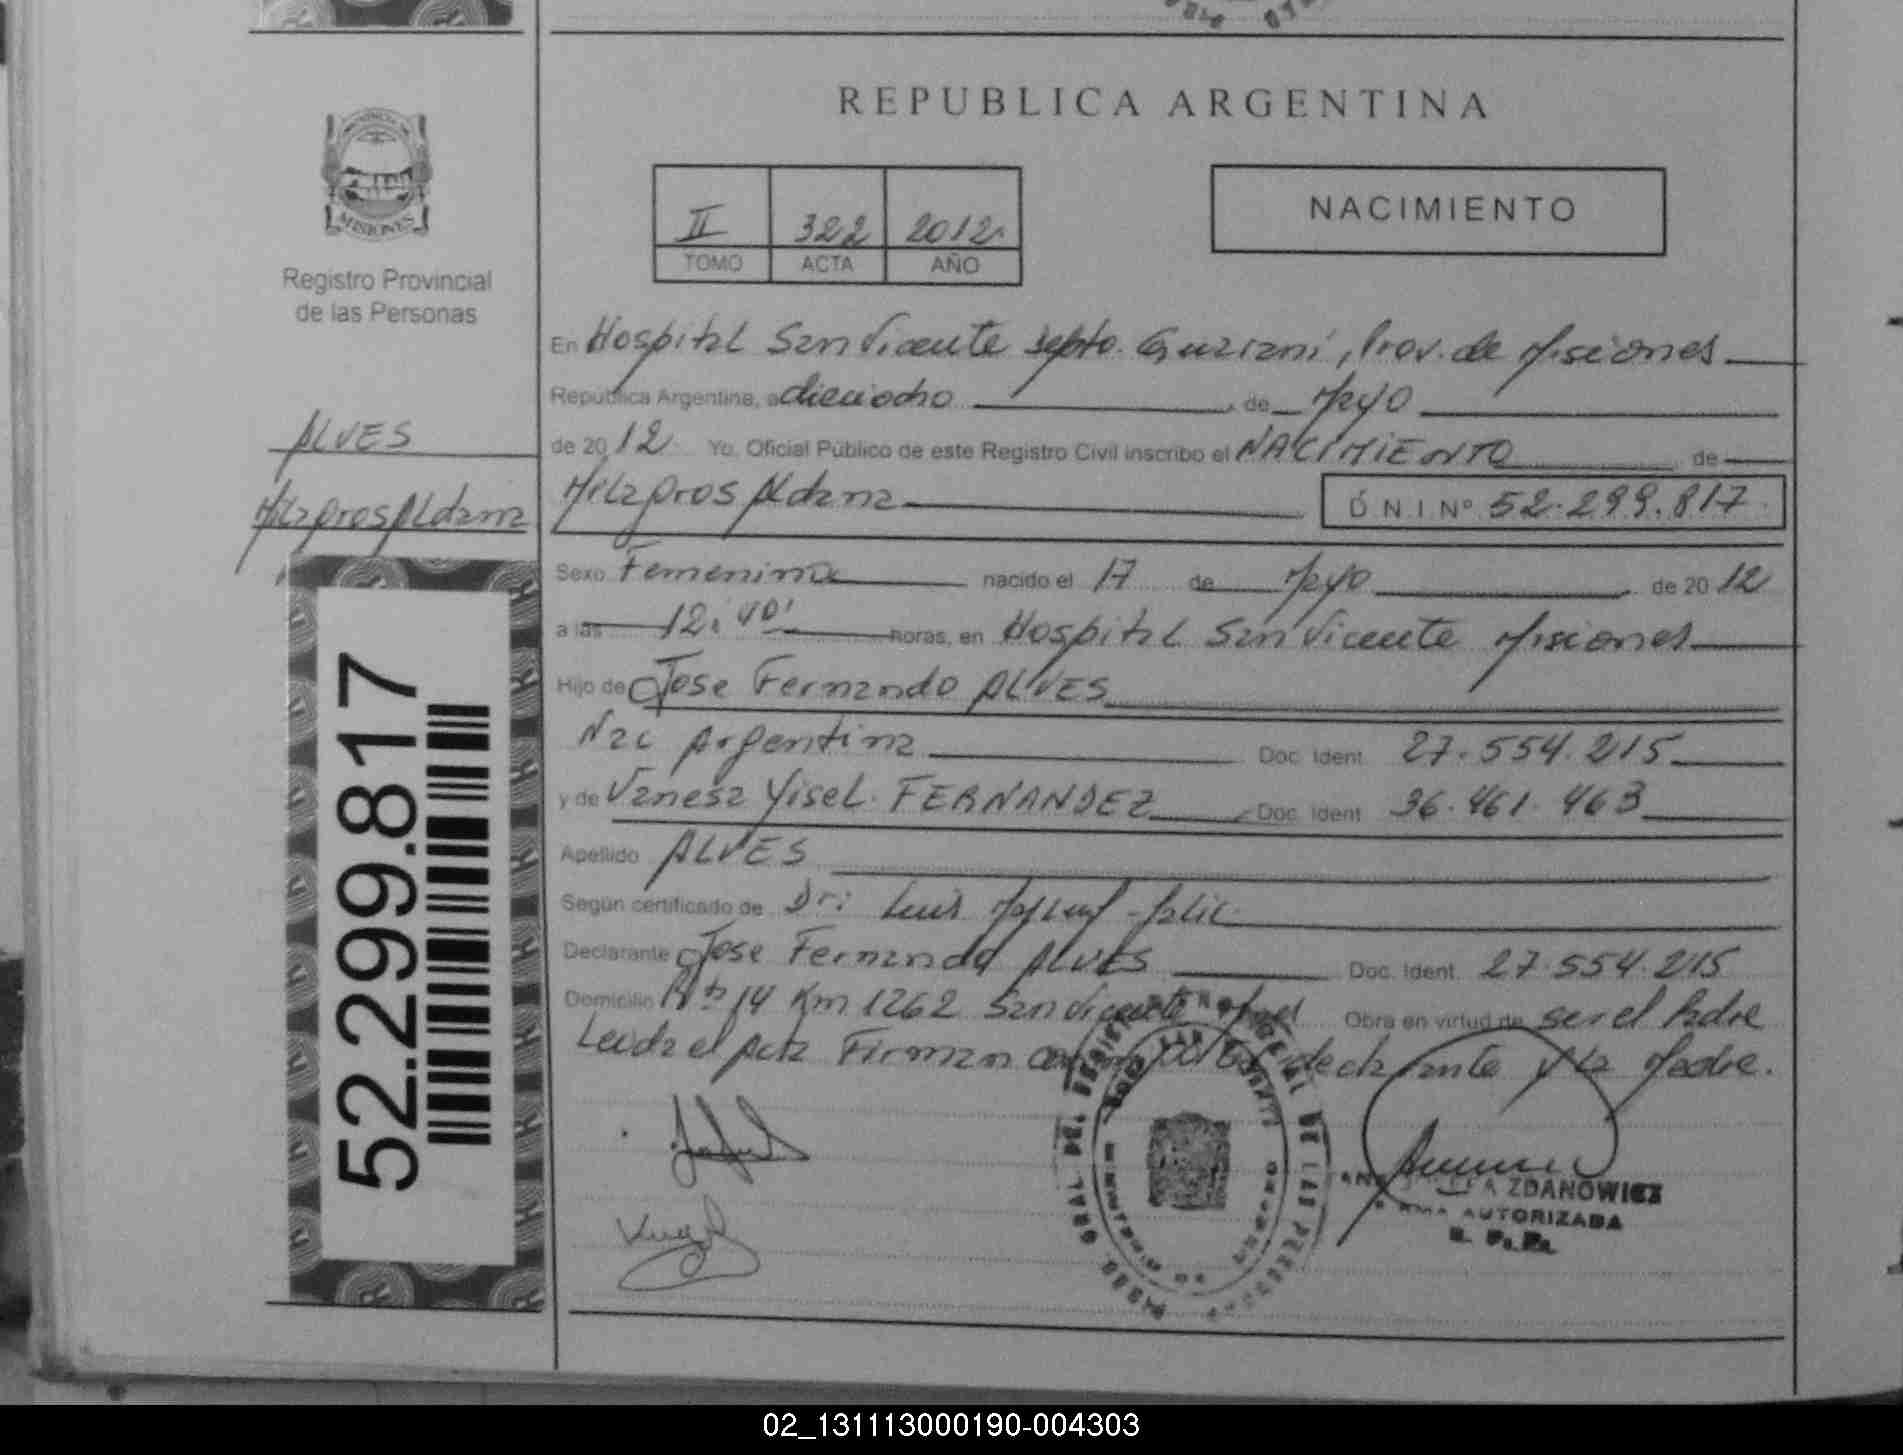 REPUBLICA ARGENTINA
MISIONES
Registro Provincial
de las Personas
II 322 2012
TOMO ACTA AÑO
NACIMIENTO
En Hospital San Vicente Depto. Guaraní, Prov. de Misiones
República Argentina, a dieciocho de Mayo
de 2012 Yo, Oficial Público de este Registro Civil inscribo el NACIMIENTO de
ALVES
Milagros Aldana
Milagros Aldana D.N.I. Nº 52.299.817
Sexo Femenina nacido el 17 de Mayo de 2012
a las 12:40 horas, en Hospital San Vicente Misiones
Hijo de Jose Fernando ALVES
Nac Argentina Doc. Ident. 27.554.215
y de Vanesa Yisel FERNANDEZ Doc. Ident. 36.461.463
Apellido ALVES
Según certificado de Dr: Luis
Declarante Jose Fernando ALVES Doc. Ident. 27.554.215
Domicilio Rta 14 Km 1262 San Vicente Obra en virtud de ser el Padre
Leida el Acta Firman el declarante y la Madre.
52.299.817
ZDANOWICZ
FIRMA AUTORIZADA
R. P. P.
02_131113000190-004303